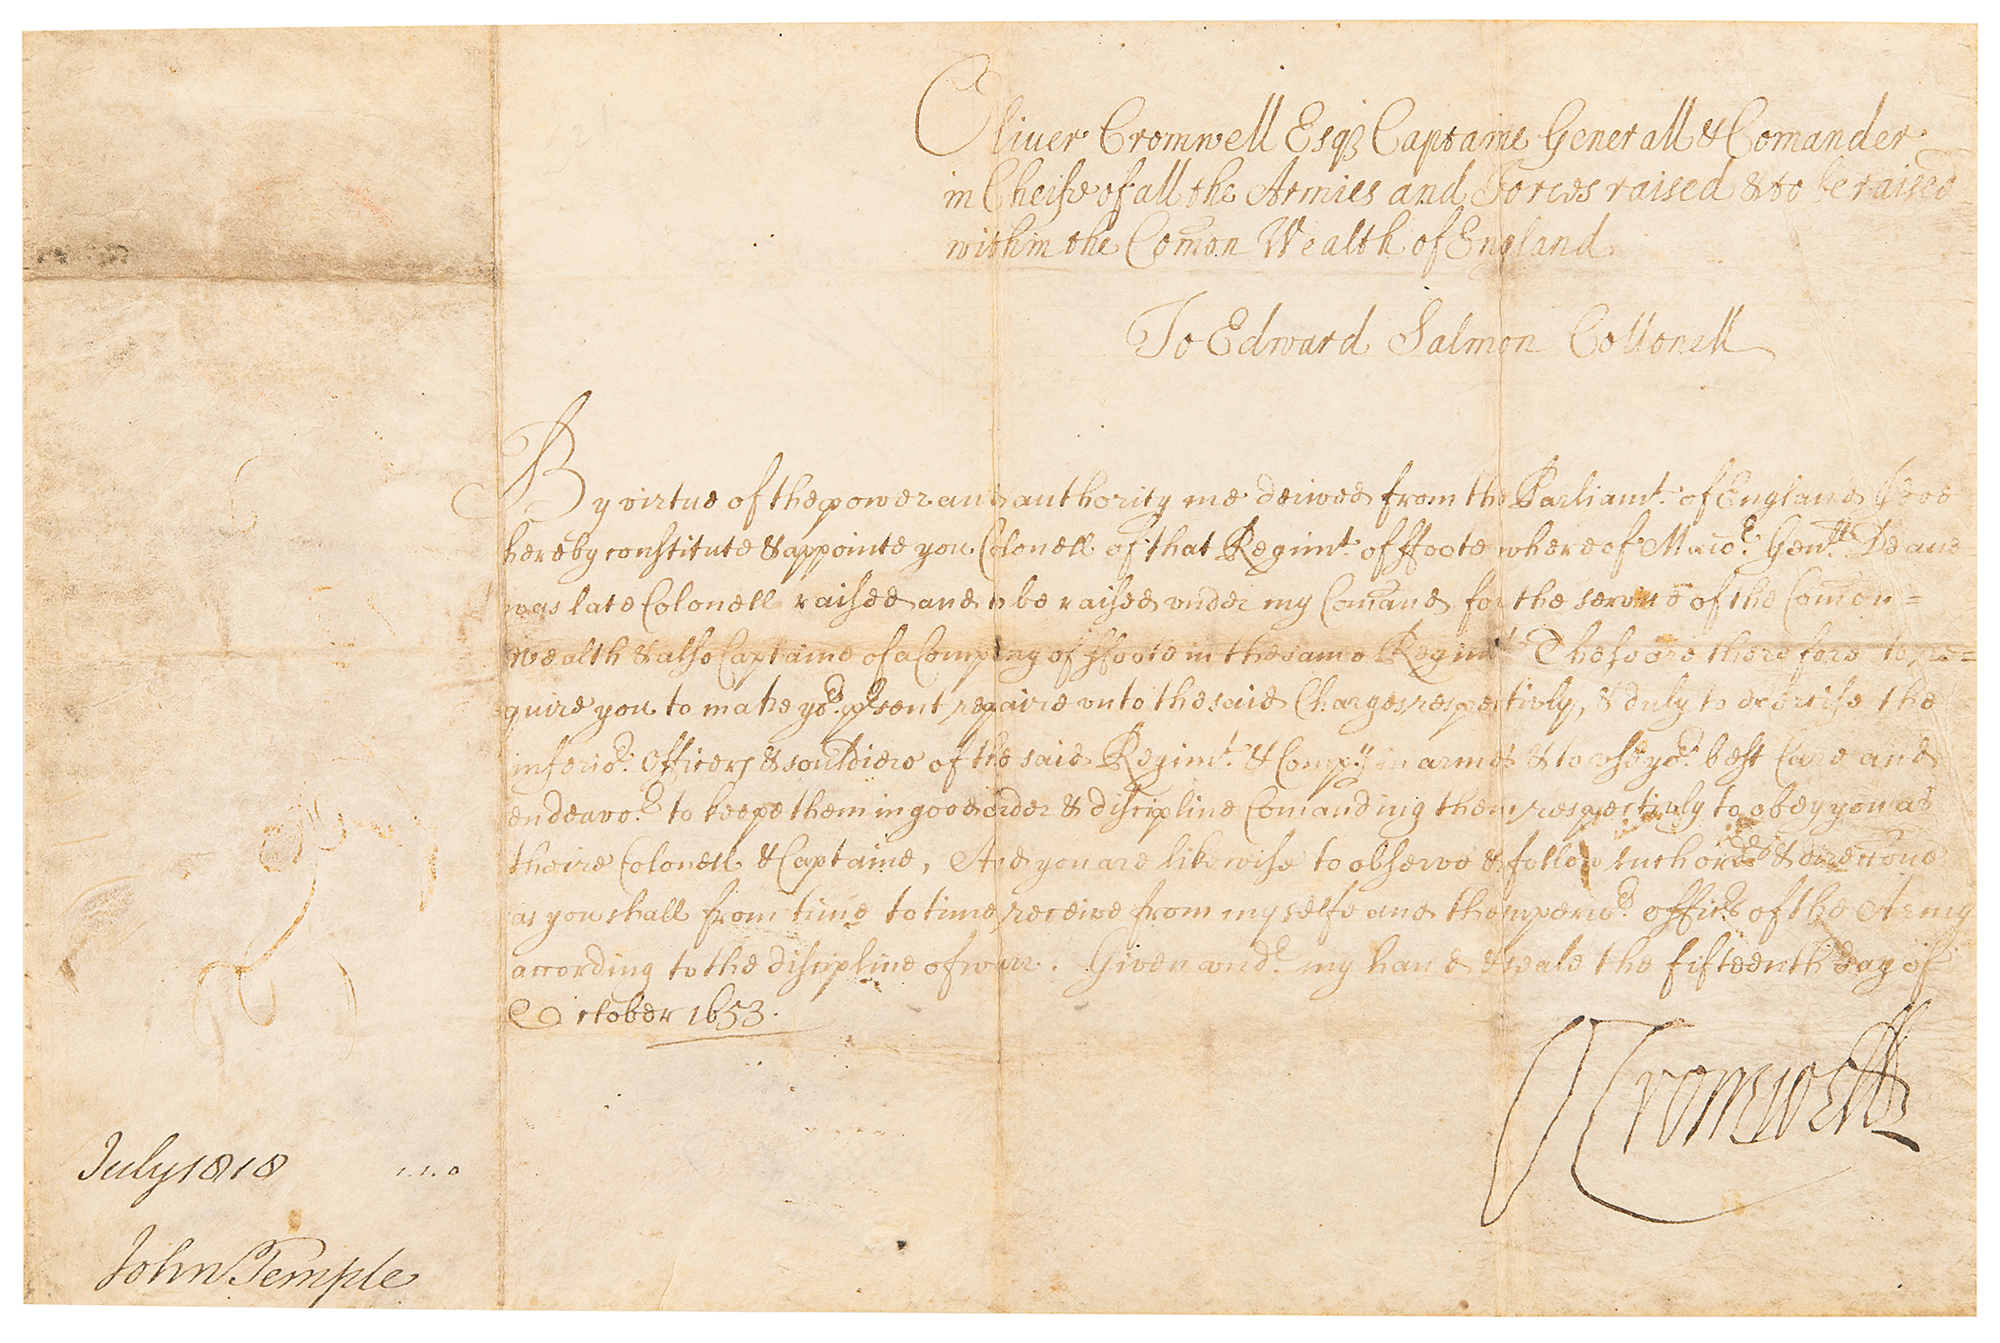 Oliver Cromwell Esqʒ Captaine Generall & Comander
in Cheife of all the Armies and Forces raised & to be raised
within the Comon Wealth of England
To Edward Salmon Collonell
By virtue of the power and authority me derived from the Parliamt. of England I doe
hereby constitute & appointe you Colonell of that Regimt. of ffoote whereof Maior. Genll. Deane
was late Colonell raised and to be raised under my Comand for the service of the Comon=
wealth & also Captaine of a Company of ffoote in the same Regimt. These are therefore to re=
quire you to make yor. present repaire unto the said Charges respectively, & duly to exercise the
inferior. Officers & souldiers of the said Regimt. & Compy. in armes & to use yor. best Care and
endeavor. to keepe them in good order & discipline Comanding them respectively to obey you as
theire Colonell & Captaine, And you are likewise to observe & follow such orders & direccons
as you shall from time to time receive from my selfe and the superior. officrs of the Army
according to the discipline of warr. Given undr. my hand & seale the fifteenth day of
October 1653.
O Cromwell
July 1818
John Temple